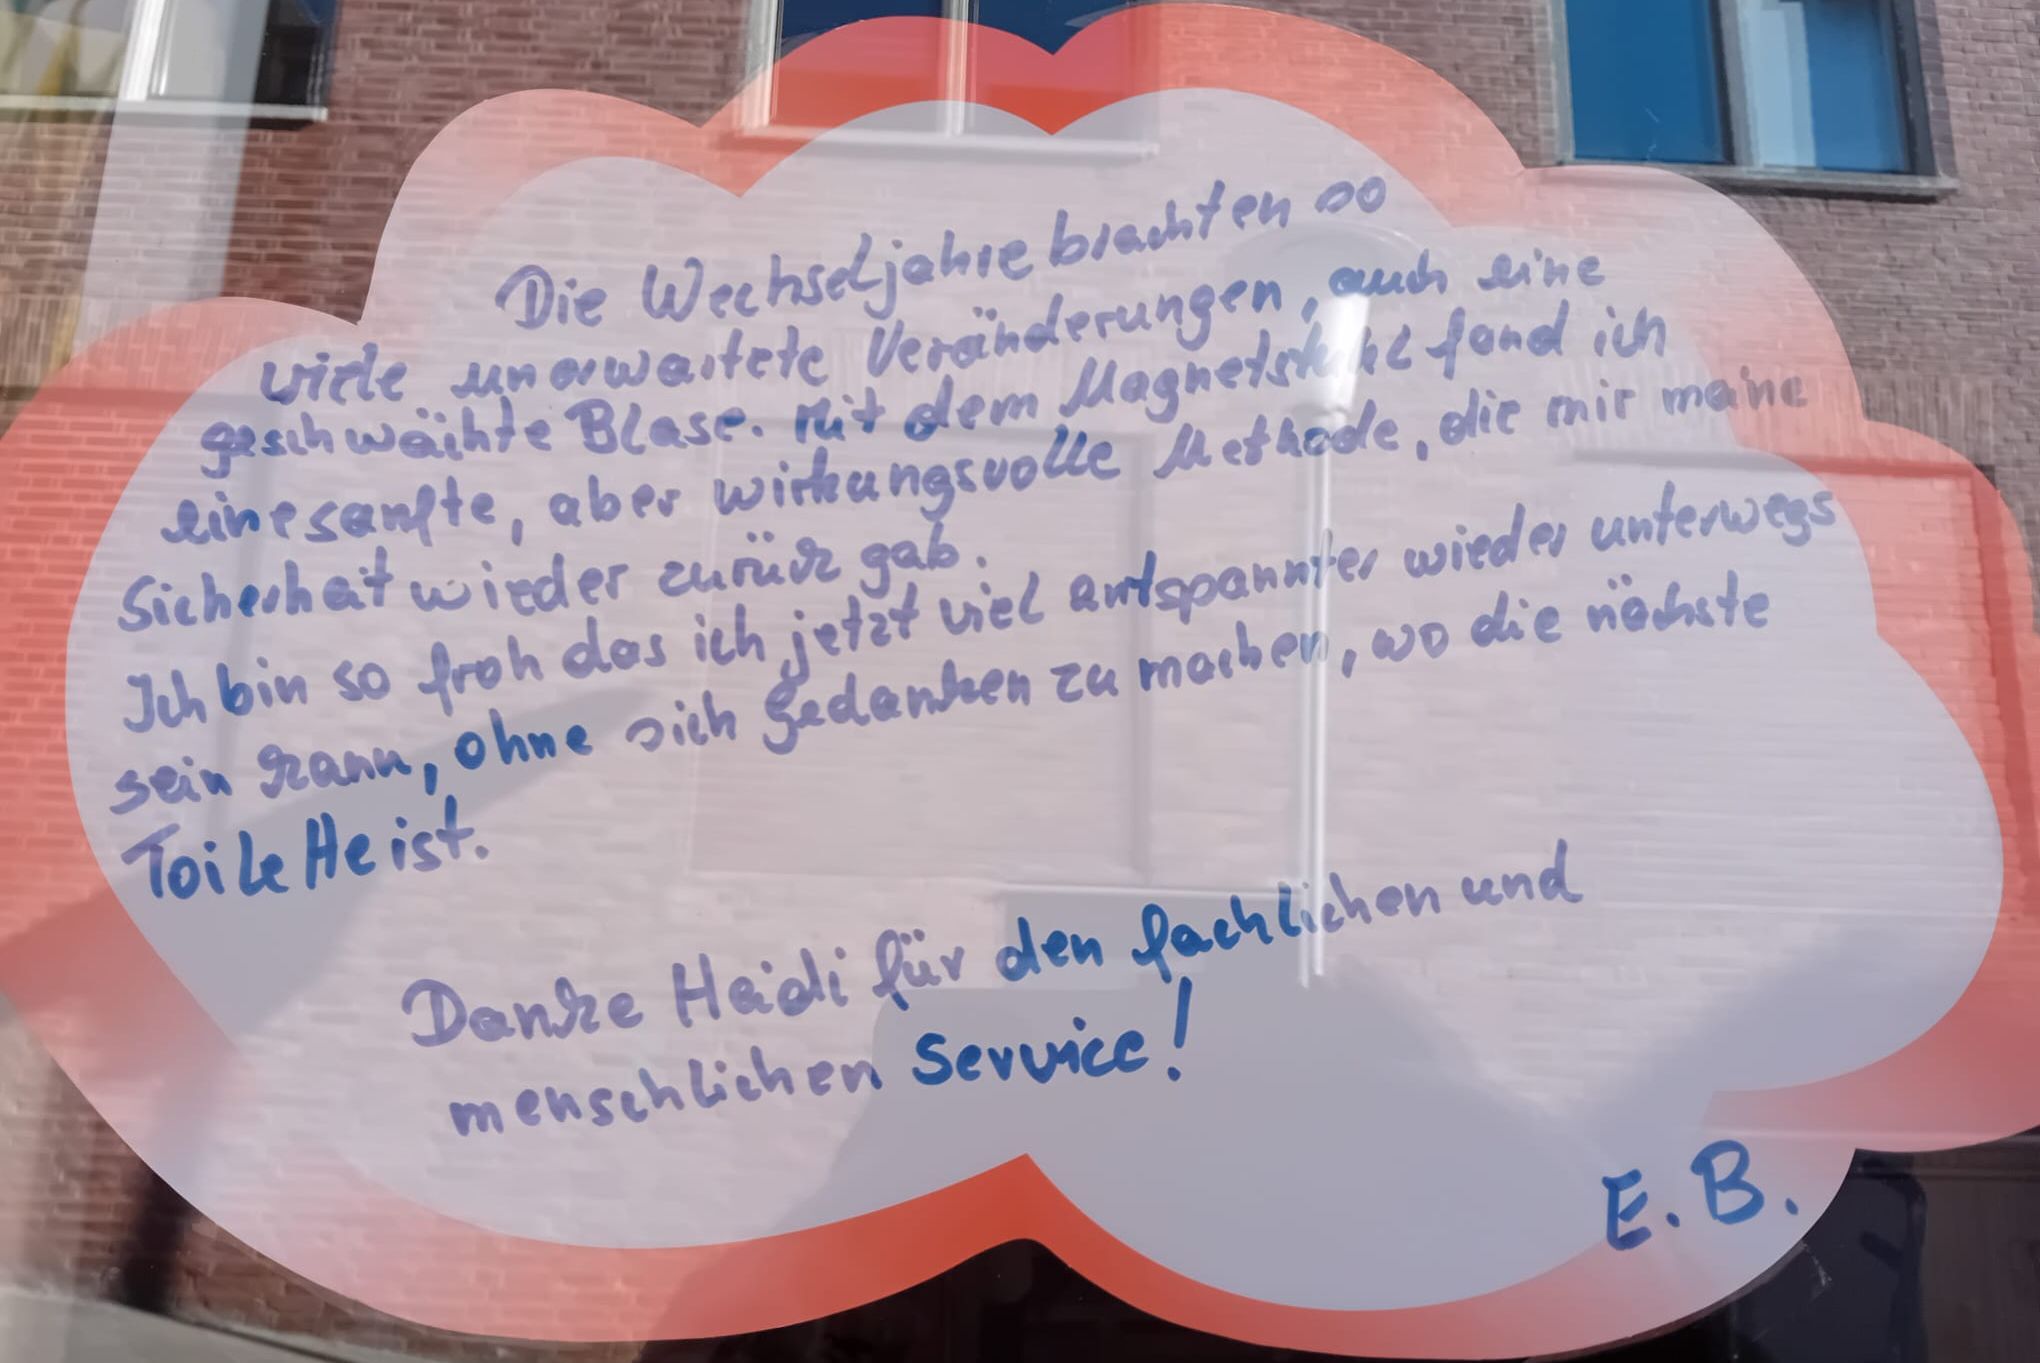 Die Wechseljahre brachten so
viele unerwartete Veränderungen, auch eine
geschwächte Blase. Mit dem Magnetstuhl fand ich
eine sanfte, aber wirkungsvolle Methode, die mir meine
Sicherheit wieder zurück gab.
Ich bin so froh das ich jetzt viel entspannter wieder unterwegs
sein kann, ohne sich Gedanken zu machen, wo die nächste
Toilette ist.
Danke Heidi für den fachlichen und
menschlichen Service!
E.B.